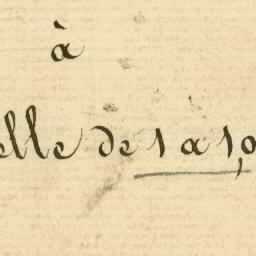 à
elle de 1 à 10